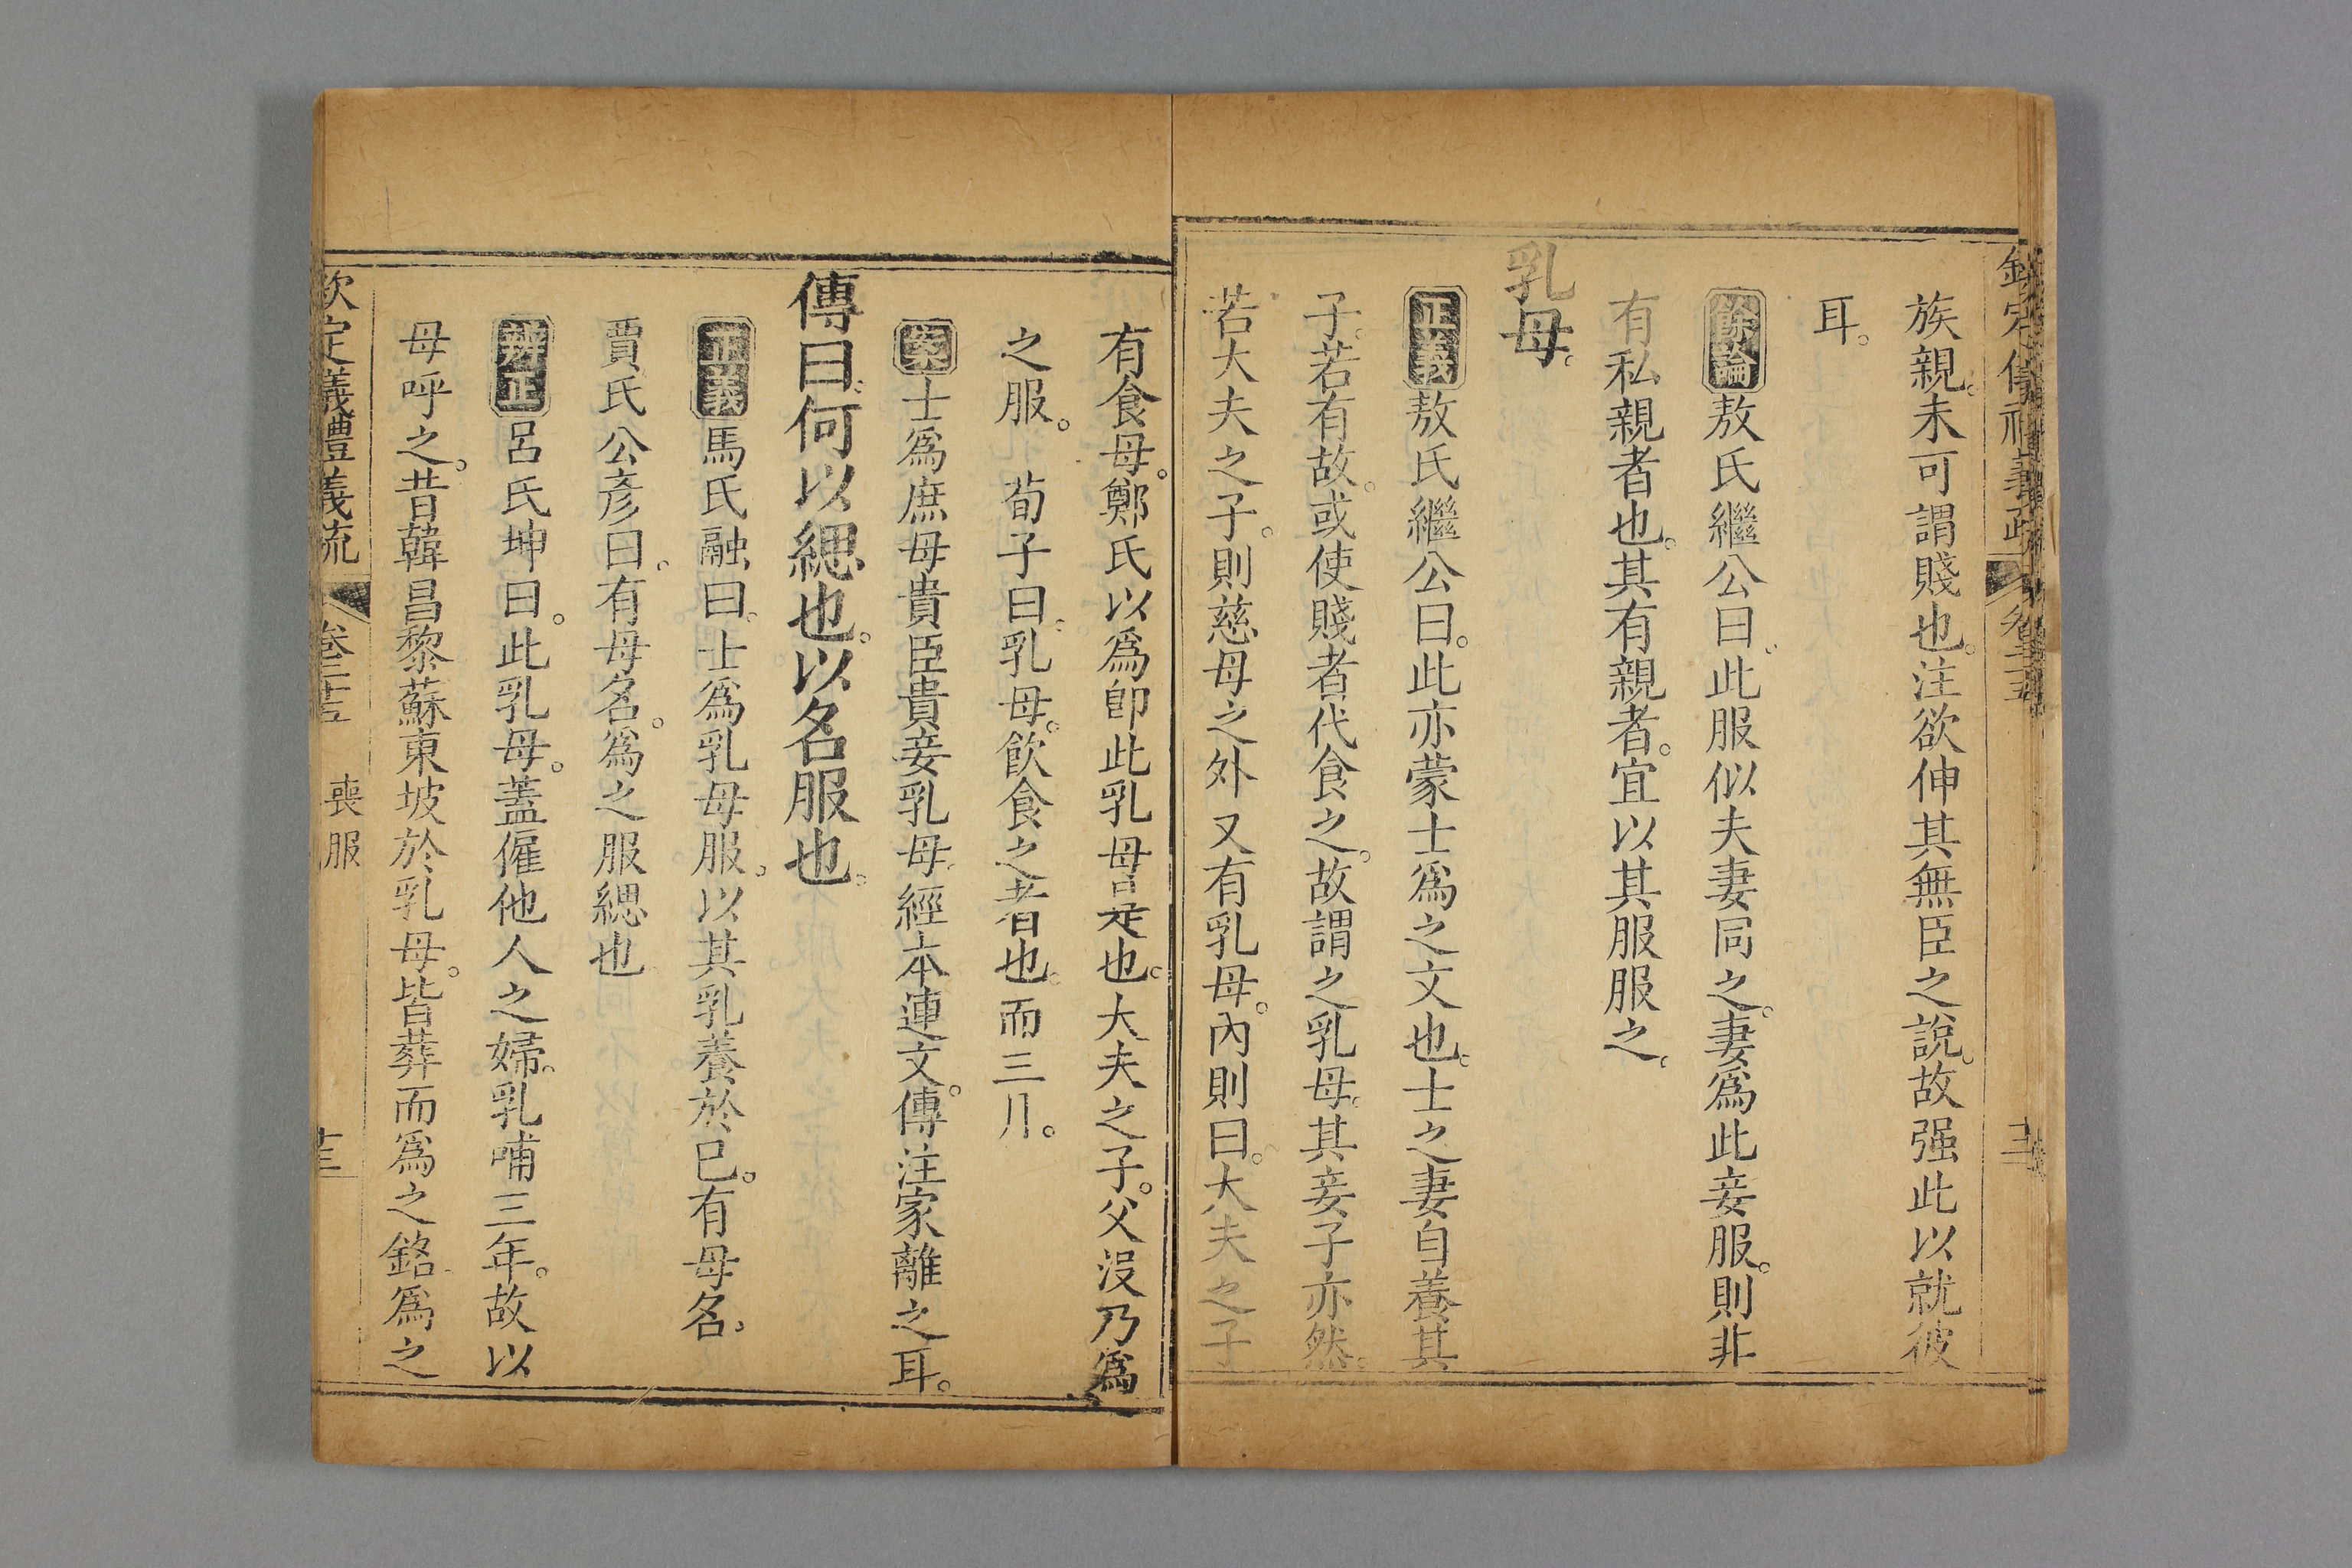 族親。未可謂賤也。注欲伸其無臣之說。故强此以就彼
耳。
餘論敖氏繼公曰此服似夫妻同之。妻爲此妾服。則非
有私親者也。其有親者。宜以其服服之。
乳母。
正義敖氏繼公曰。此亦蒙士爲之文也。士之妻自養其
子。若有故。或使賤者代食之。故謂之乳母。其妾子亦然。
若大夫之子。則慈母之外又有乳母。內則曰。大夫之子
有食母。鄭氏以爲卽此乳母是也。大夫之子。父沒乃爲
之服。 荀子曰。乳母。飲食之者也。而三月。
案士爲庶母貴臣貴妾乳母。經本連文。傳注家離之耳。
傳曰。何以緦也。以名服也。
正義馬氏融曰。士爲乳母服。以其乳養於已。有母名。
賈氏公彥曰。有母名。爲之服緦也
辨正呂氏坤曰。此乳母。蓋僱他人之婦。乳哺三年。故以
母呼之。昔韓昌黎蘇東坡於乳母。皆葬而爲之銘爲之
欽定義禮義疏 卷二十五 喪服